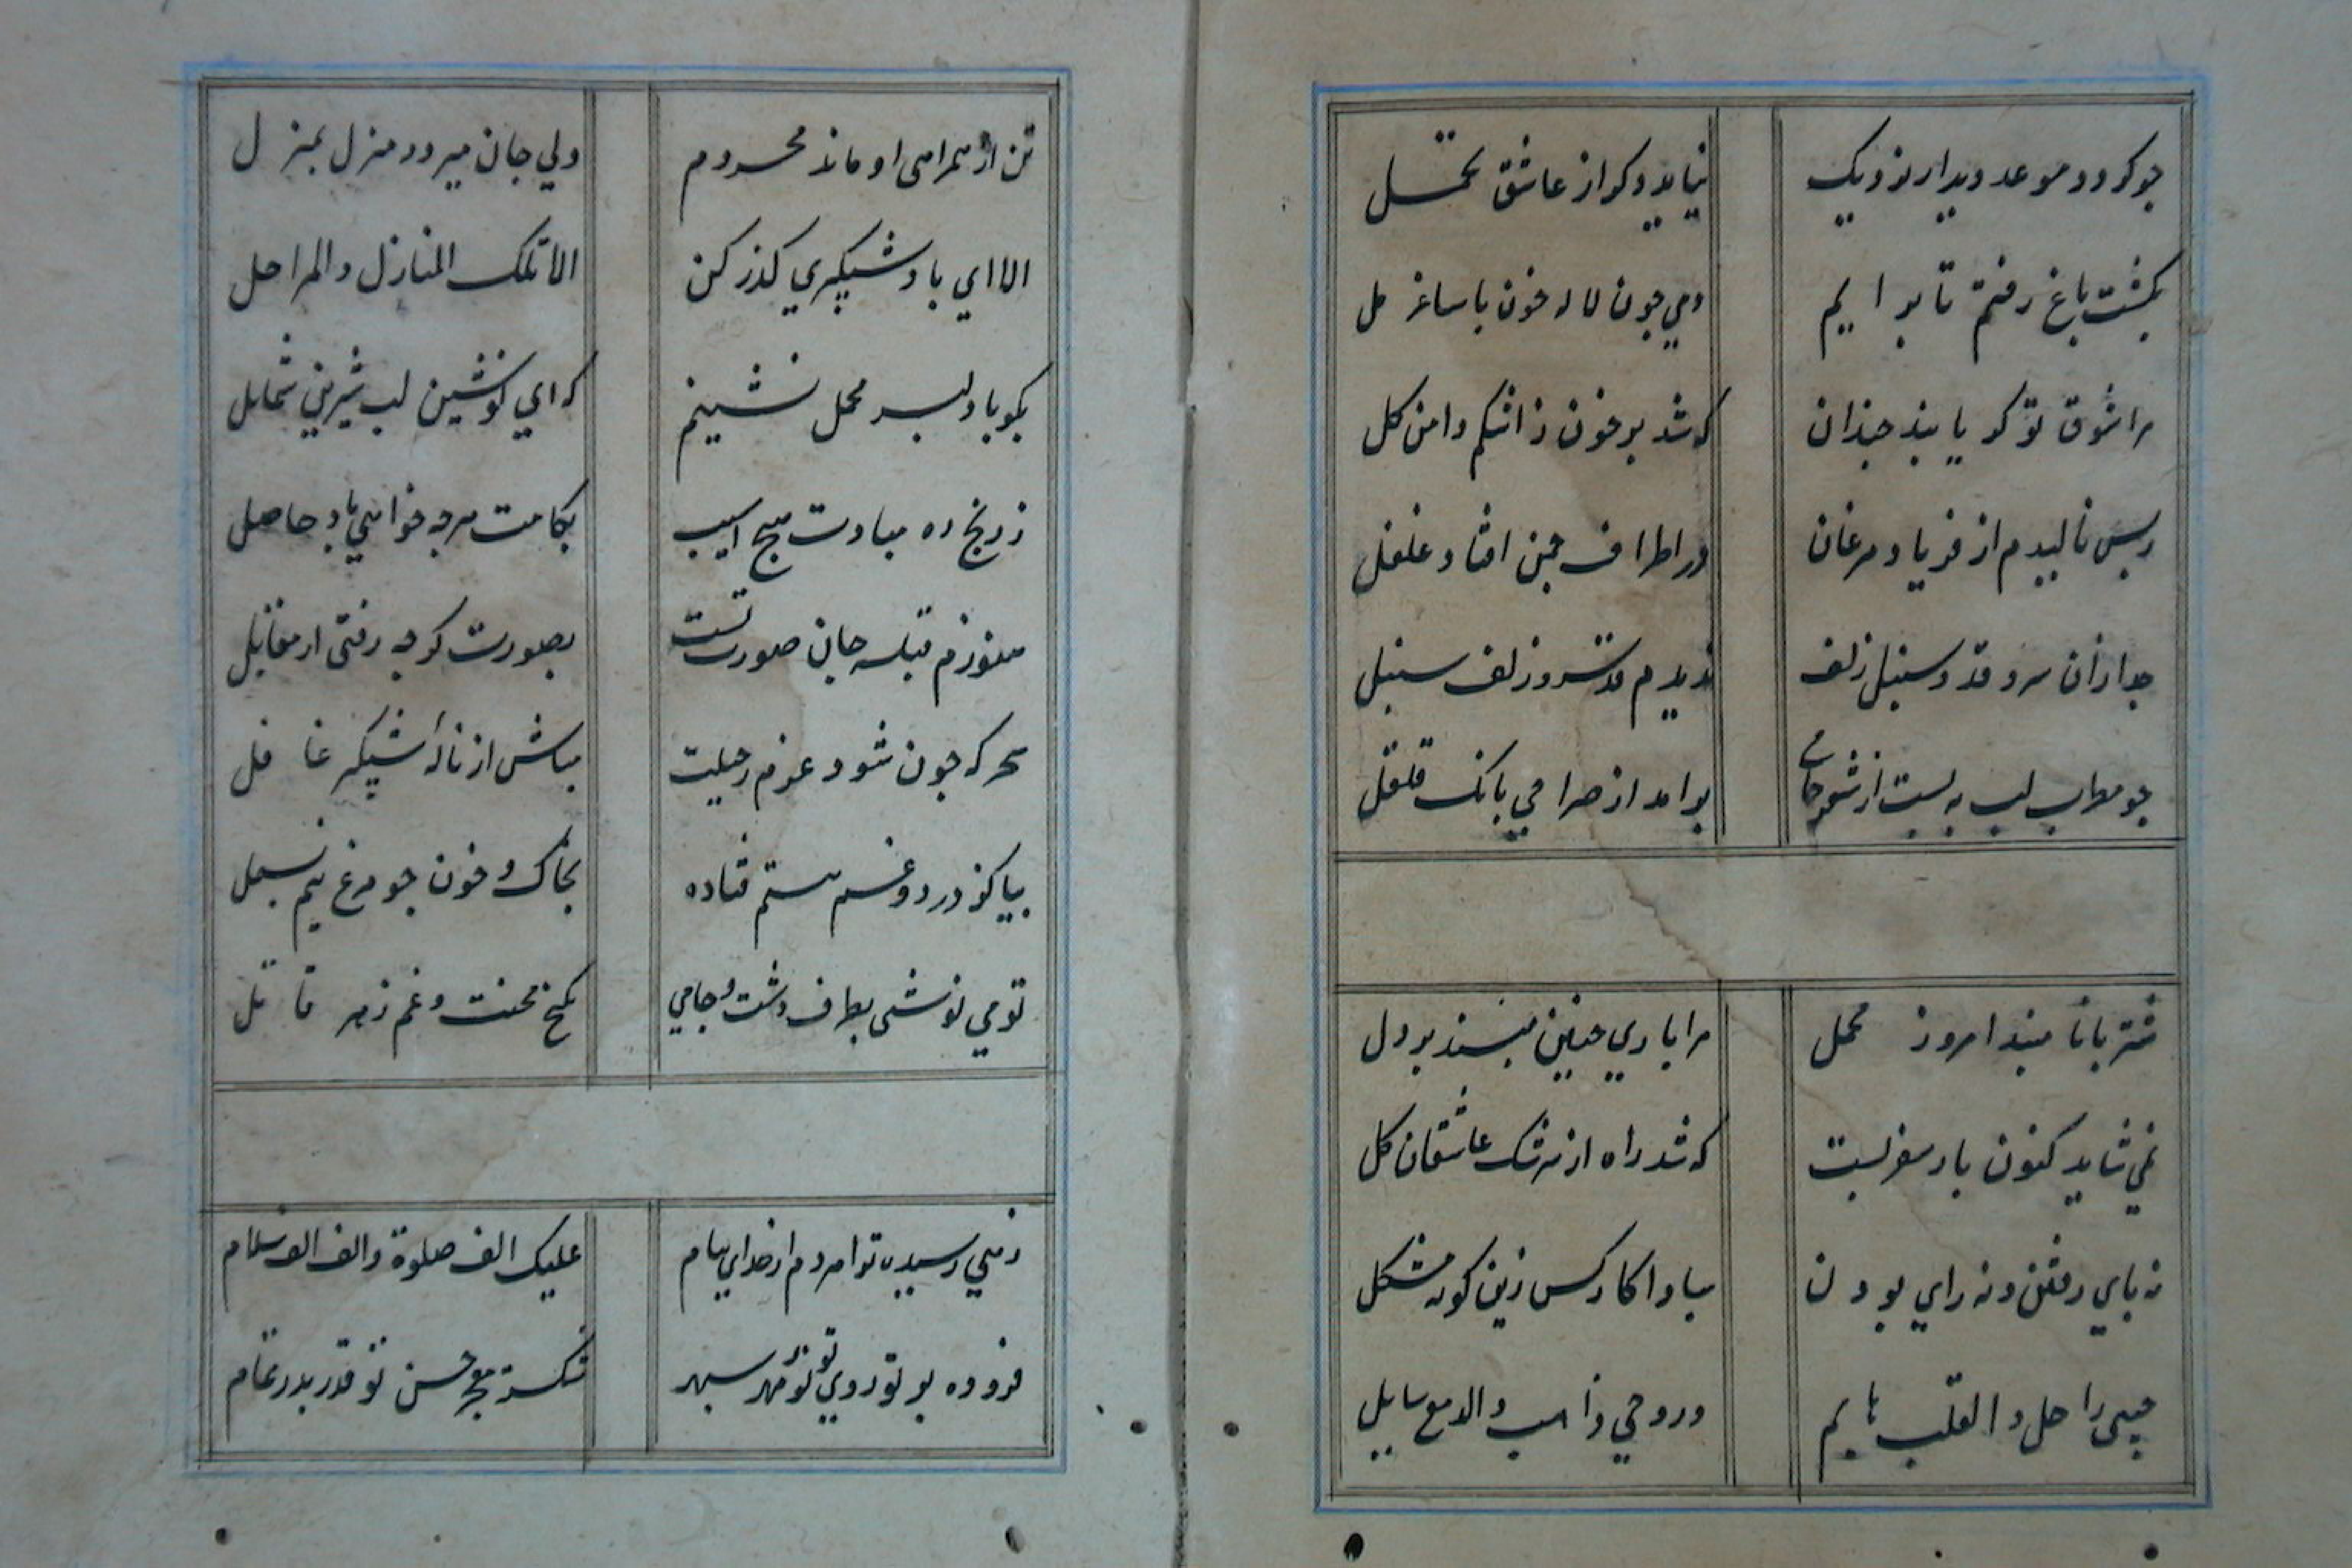 چو کردد موعد دیدار نزدیک نیاید دکر از عاشق تحمل
بکشت باغ رفتم تا برایم دمی چون لاله خون با ساغر مل
مرا شوق تو کریانید چندان که شد پر خون ز اشکم دامن کل
ز بس نالیدم از فریاد مرغان در اطراف چمن افتاد غلغل
جدا زان سرو قد و سنبل زلف ندیدم قد سرو و زلف سنبل
چو مطرب لب به بست از شعر جامی برامد از صراحی بانک قلقل
شتربانا مبند امروز محمل مرا باری چنین مپسند بر دل
نمی شاید کنون بار سفر بست که شد راه از سرشک عاشقان کل
نه پای رفتن و نه رای بودن مبادا کار کس زین کونه مشکل
حبیبی راحل و القلب هایم و روحی ذاهب و الدمع سایل
تن از همراهی او ماند محروم ولی جان میرود منزل بمنزل
الا ای باد شبکیری کذر کن الا تلک المنازل والمراحل
بکو با دلبر محمل نشینم که ای نوشین لب شیرین شمایل
ز رنج ره مبادت هیچ اسیب بکامت هرچه خواهی باد حاصل
هنوزم قبله جان صورت تست بصورت کرچه رفتی از مقابل
سحرکه چون شود عزم رحیلت مباش از ناله شبکیر غافل
بیا کز درد و غم هستم فتاده بخاک و خون چو مرغ نیم بسمل
تو می نوشی بطرف دشت و جامی بکنج محنت و غم زهر قاتل
زهی رسیده تو را هر دم از خدای پیام علیک الف صلوة و الف الف سلام
فزوده پرتو روی تو نور مهر سپهر شکسته معجز حسن تو قدر بدر تمام